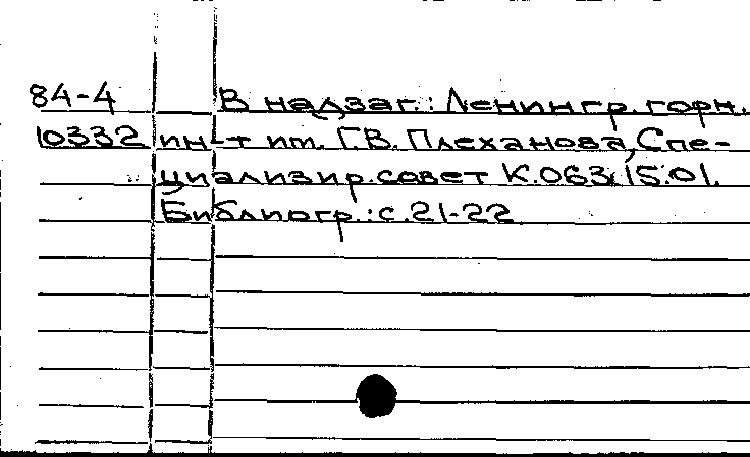 84-4 В надзаг.: Ленингр. горн.
10332 ин-т им. Г.В. Плеханова, Спе-
циализир. совет К.063.15.01.
Библиогр.: с. 21-22